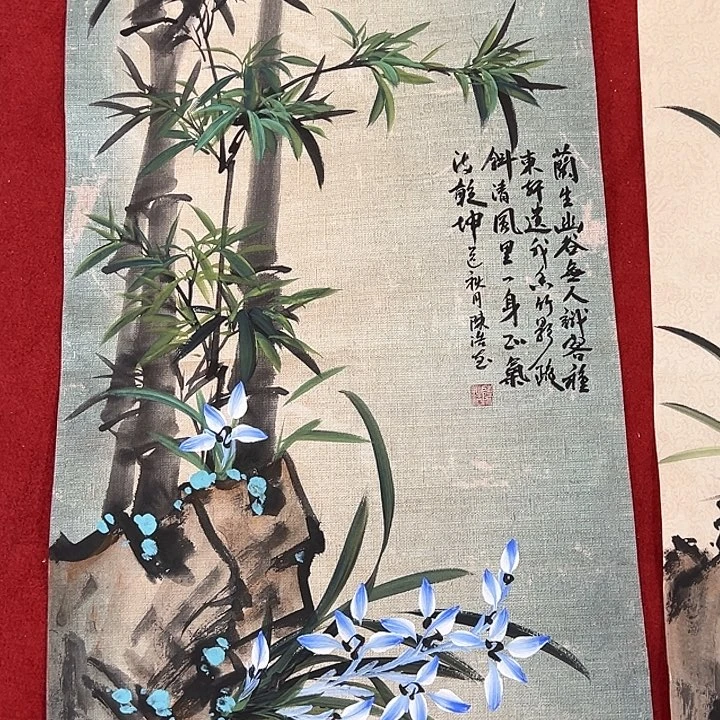 蘭生幽谷無人識客種
東軒遺我香竹影疏
斜清風里一身正氣
满乾坤 秋月陳浩画